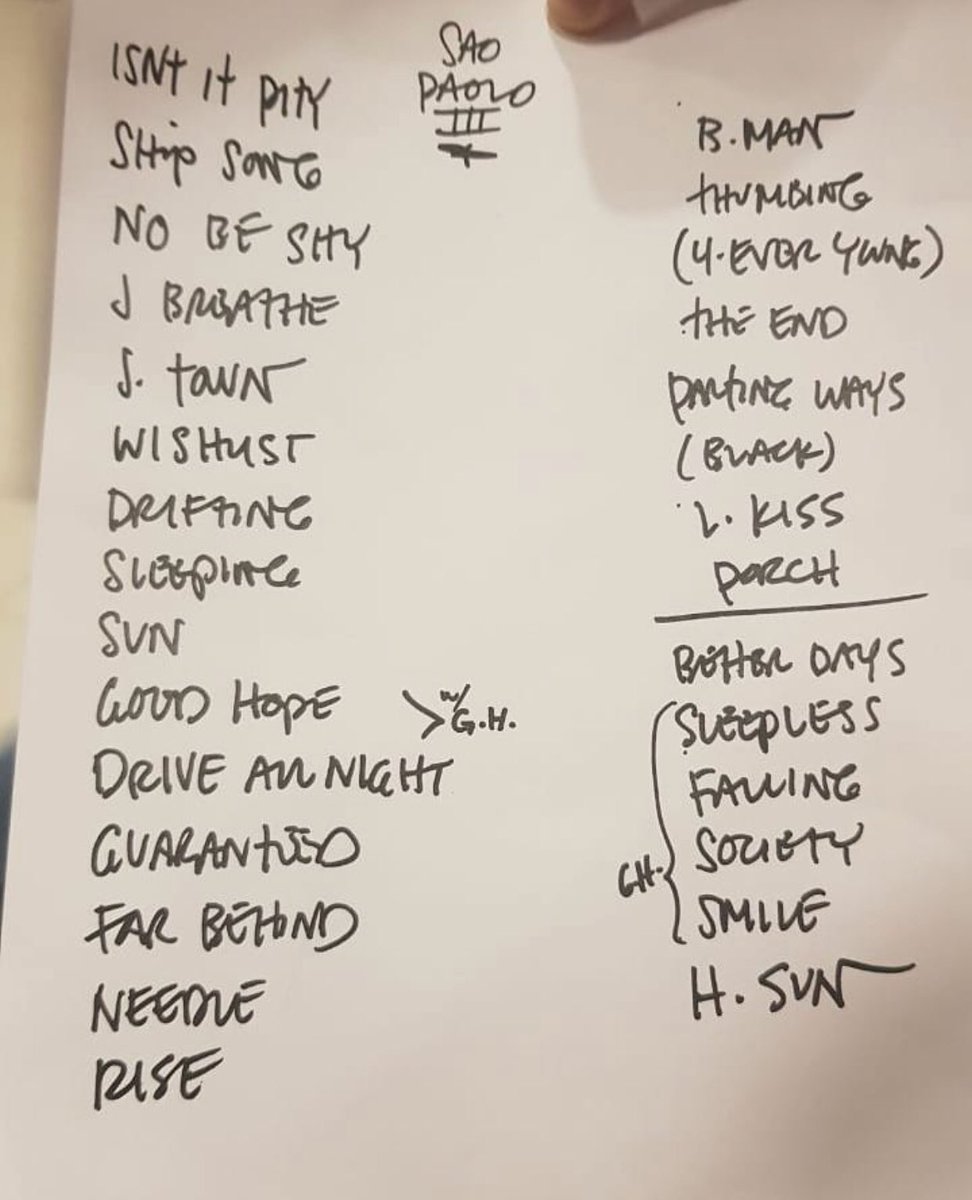 SAO
PAOLO
III
ISNT IT PITY
SHIP SONG
NO BE SHY
J BREATHE
S. TOWN
WISHLIST
DRIFTING
SLEEPING
SUN
GOOD HOPE
W/
G.H.
DRIVE ALL NIGHT
GUARANTEED
FAR BEHIND
NEEDLE
RISE
B.MAN
THUMBING
(4-EVER YOUNG)
THE END
PARTING WAYS
(BLACK)
L. KISS
PORCH
BETTER DAYS
SLEEPLESS
FALLING
SOCIETY
G.H.
SMILE
H. SUN